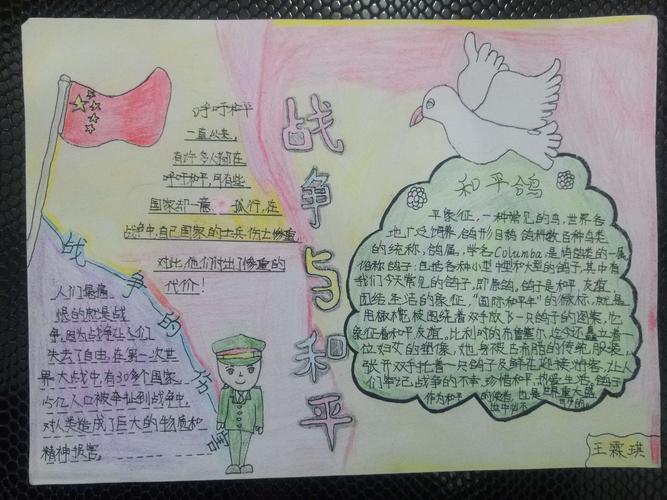 战争与和平
呼吁和平
一直以来,
有许多人都在
呼吁和平,可有些
国家却一意 孤行,在
战争中,自己国家的士兵伤亡惨重,
对此,他们付出了惨重的
代价!
战争的危害
人们最痛
恨的就是战
争,因为战争让人们
失去了自由,在第一次世
界大战中,有30多个国家,
15亿人口被卷到战争中,
对人类造成了巨大的物质和
精神损害,
和平鸽
平象征,一种常见的鸟,世界各
地广泛饲养,鸽形目鸠鸽科数百种鸟类
的统称,鸽属,学名Columba,是鸠鸽类的一属,
俗称鸽子:包括各种小型中型和大型的鸽子,其中有
我们今天常见的鸽子,即原鸽,鸽子是和平,友谊,
团结,生活的象征,"国际和平年"的徽标,就是
用橄榄枝围绕着双手放飞一只鸽子的图案,也
象征着和平友谊。比利时的布鲁塞尔,迄今还矗立着一
位妇女的塑像,她身披古希腊的传统服装,
张开双手托着一只鸽子及鲜花迎接宾客,让人
们牢记战争的不幸,珍惜和平,热爱生活。鸽子
作为和平 的使者,也是世界重大盛
会中必不
王霖琪